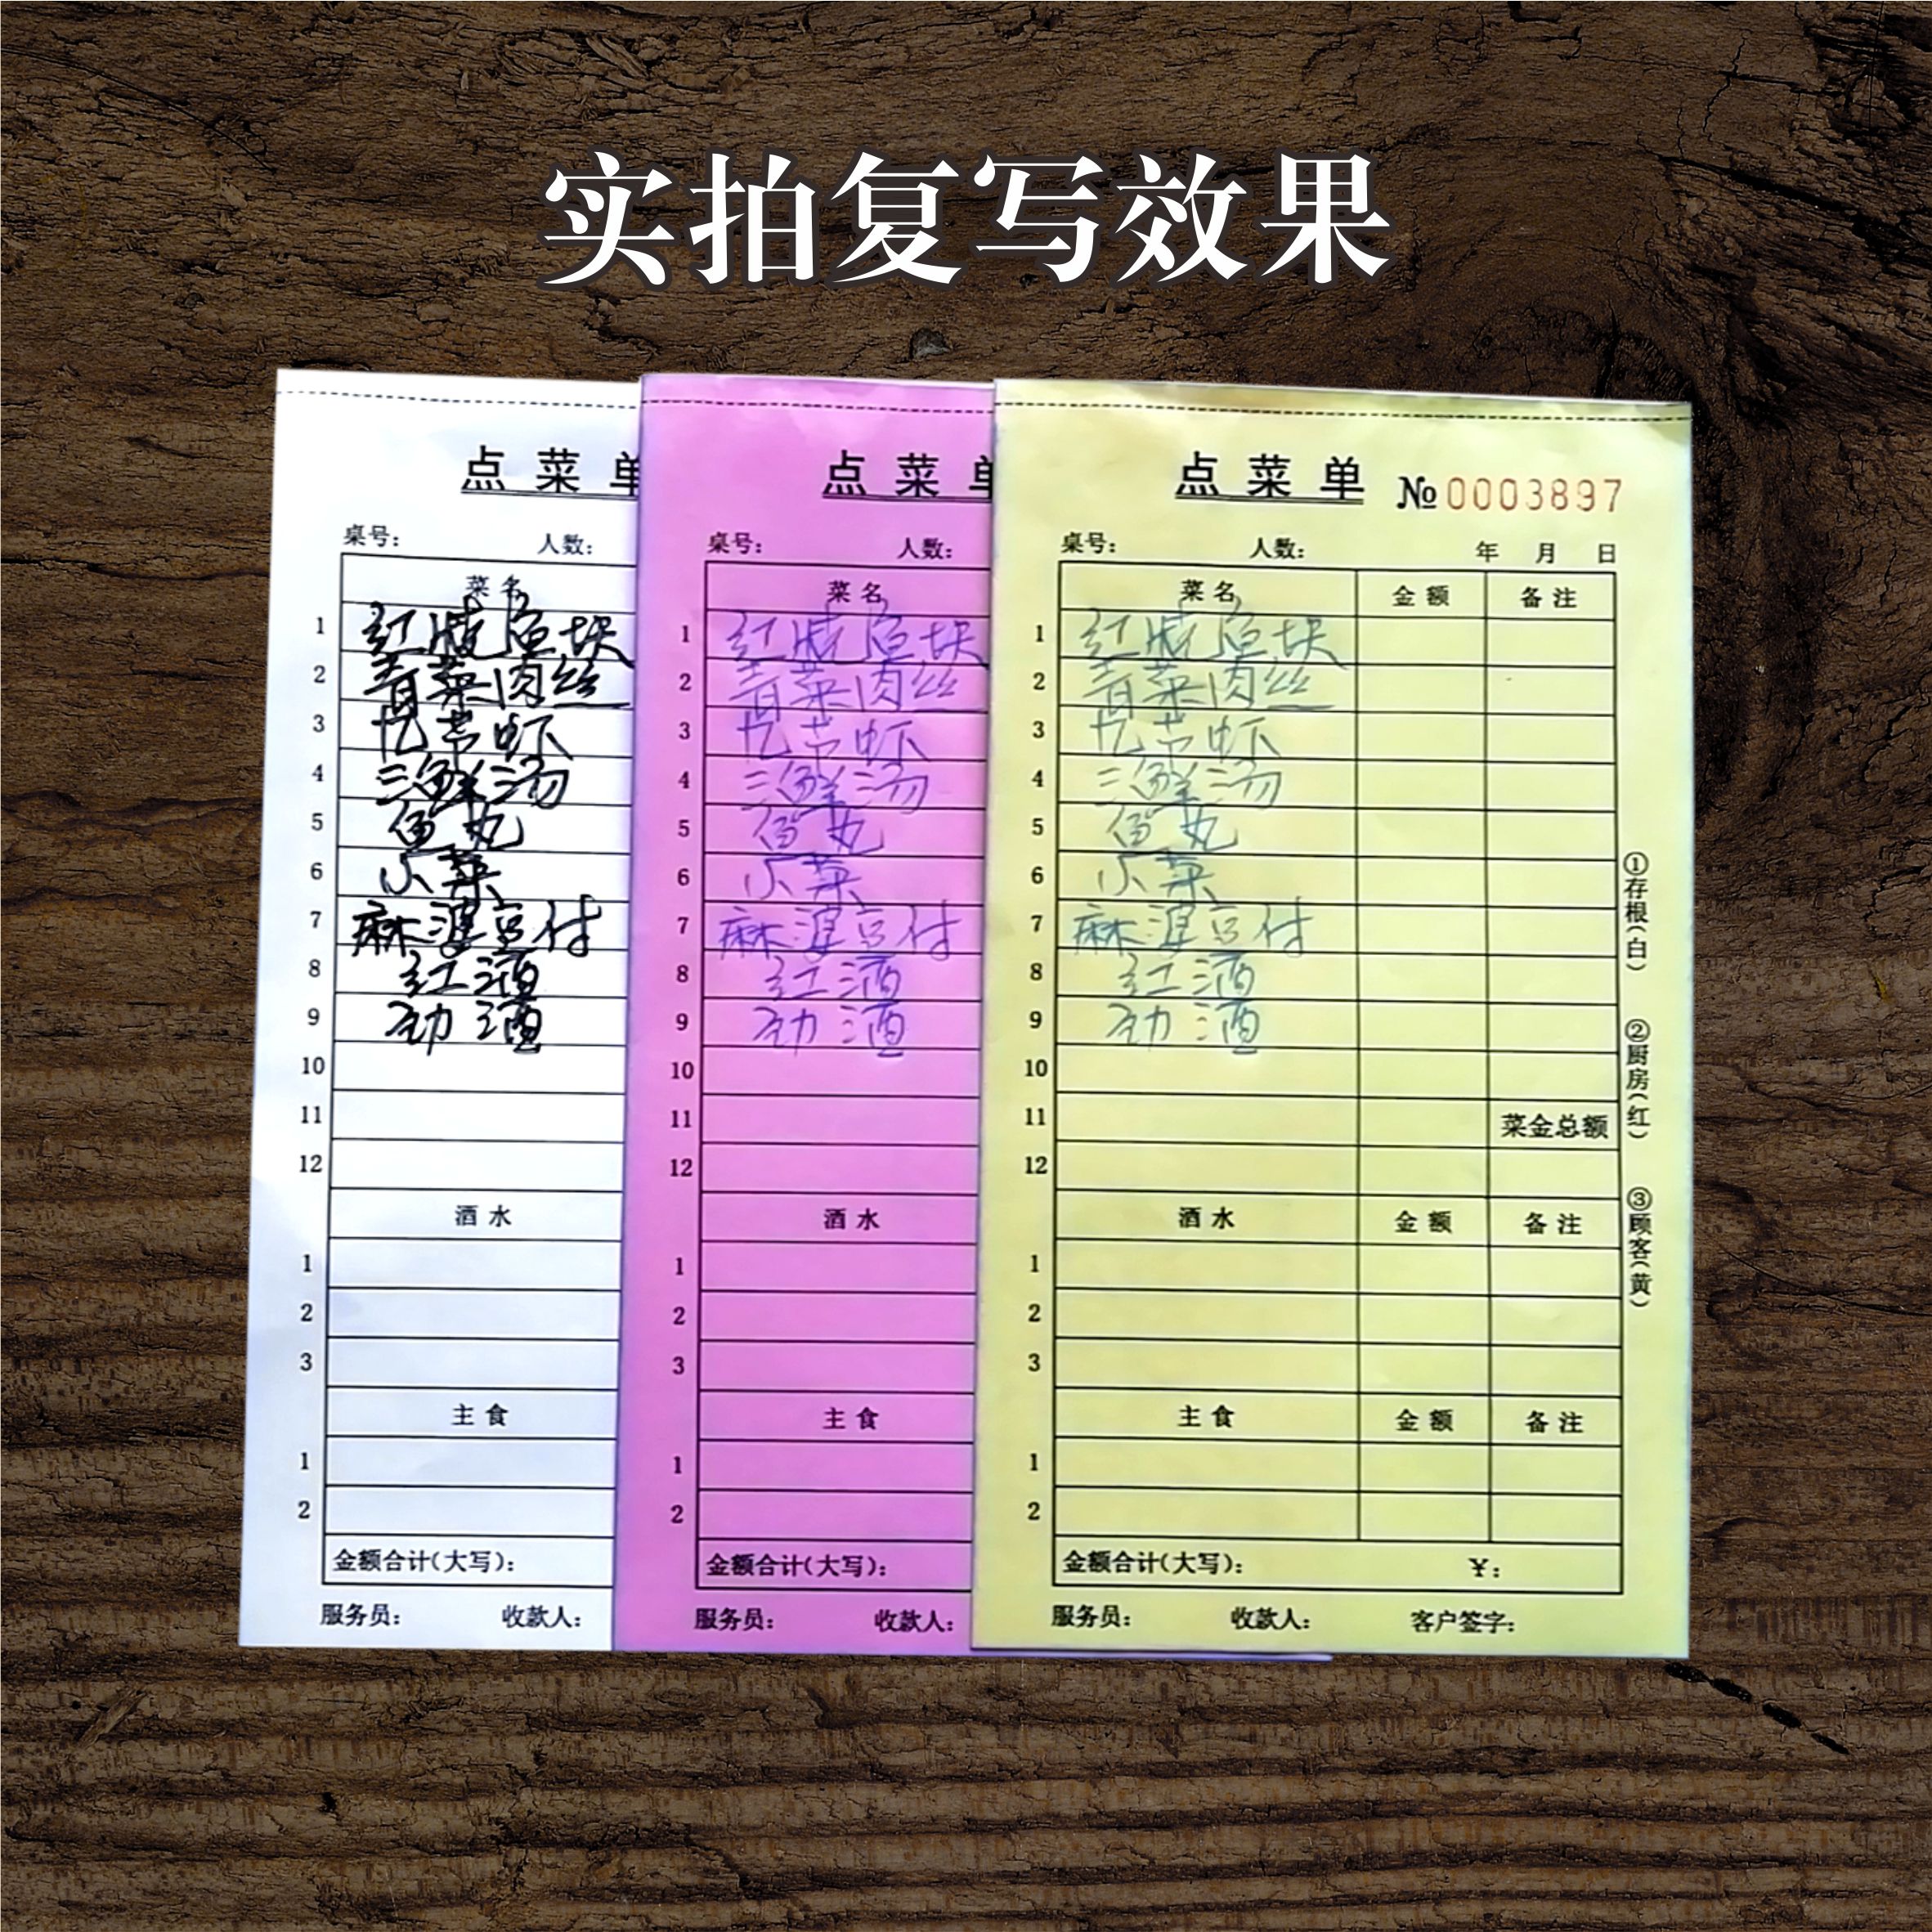 实拍复写效果
点菜单
桌号： 人数：
菜名
1 红烧鱼块
2 青菜肉丝
3
4 三鲜汤
5 鱼丸
6 小菜
7 麻婆豆付
8 红酒
9 劲酒
10
11
12
酒水
1
2
3
主食
1
2
金额合计(大写)：
服务员： 收款人：
点菜单
桌号： 人数：
菜名
1 红烧鱼块
2 青菜肉丝
3
4 三鲜汤
5 鱼丸
6 小菜
7 麻婆豆付
8 红酒
9 劲酒
10
11
12
酒水
1
2
3
主食
1
2
金额合计(大写)：
服务员： 收款人：
点菜单 № 0003897
桌号： 人数： 年 月 日
菜名 金额 备注
1 红烧鱼块
2 青菜肉丝
3
4 三鲜汤
5 鱼丸
6 小菜
7 麻婆豆付
8 红酒
9 劲酒
10
11 菜金总额
12
酒水 金额 备注
1
2
3
主食 金额 备注
1
2
金额合计(大写)： ¥：
服务员： 收款人： 客户签字：
①存根(白) ②厨房(红) ③顾客(黄)